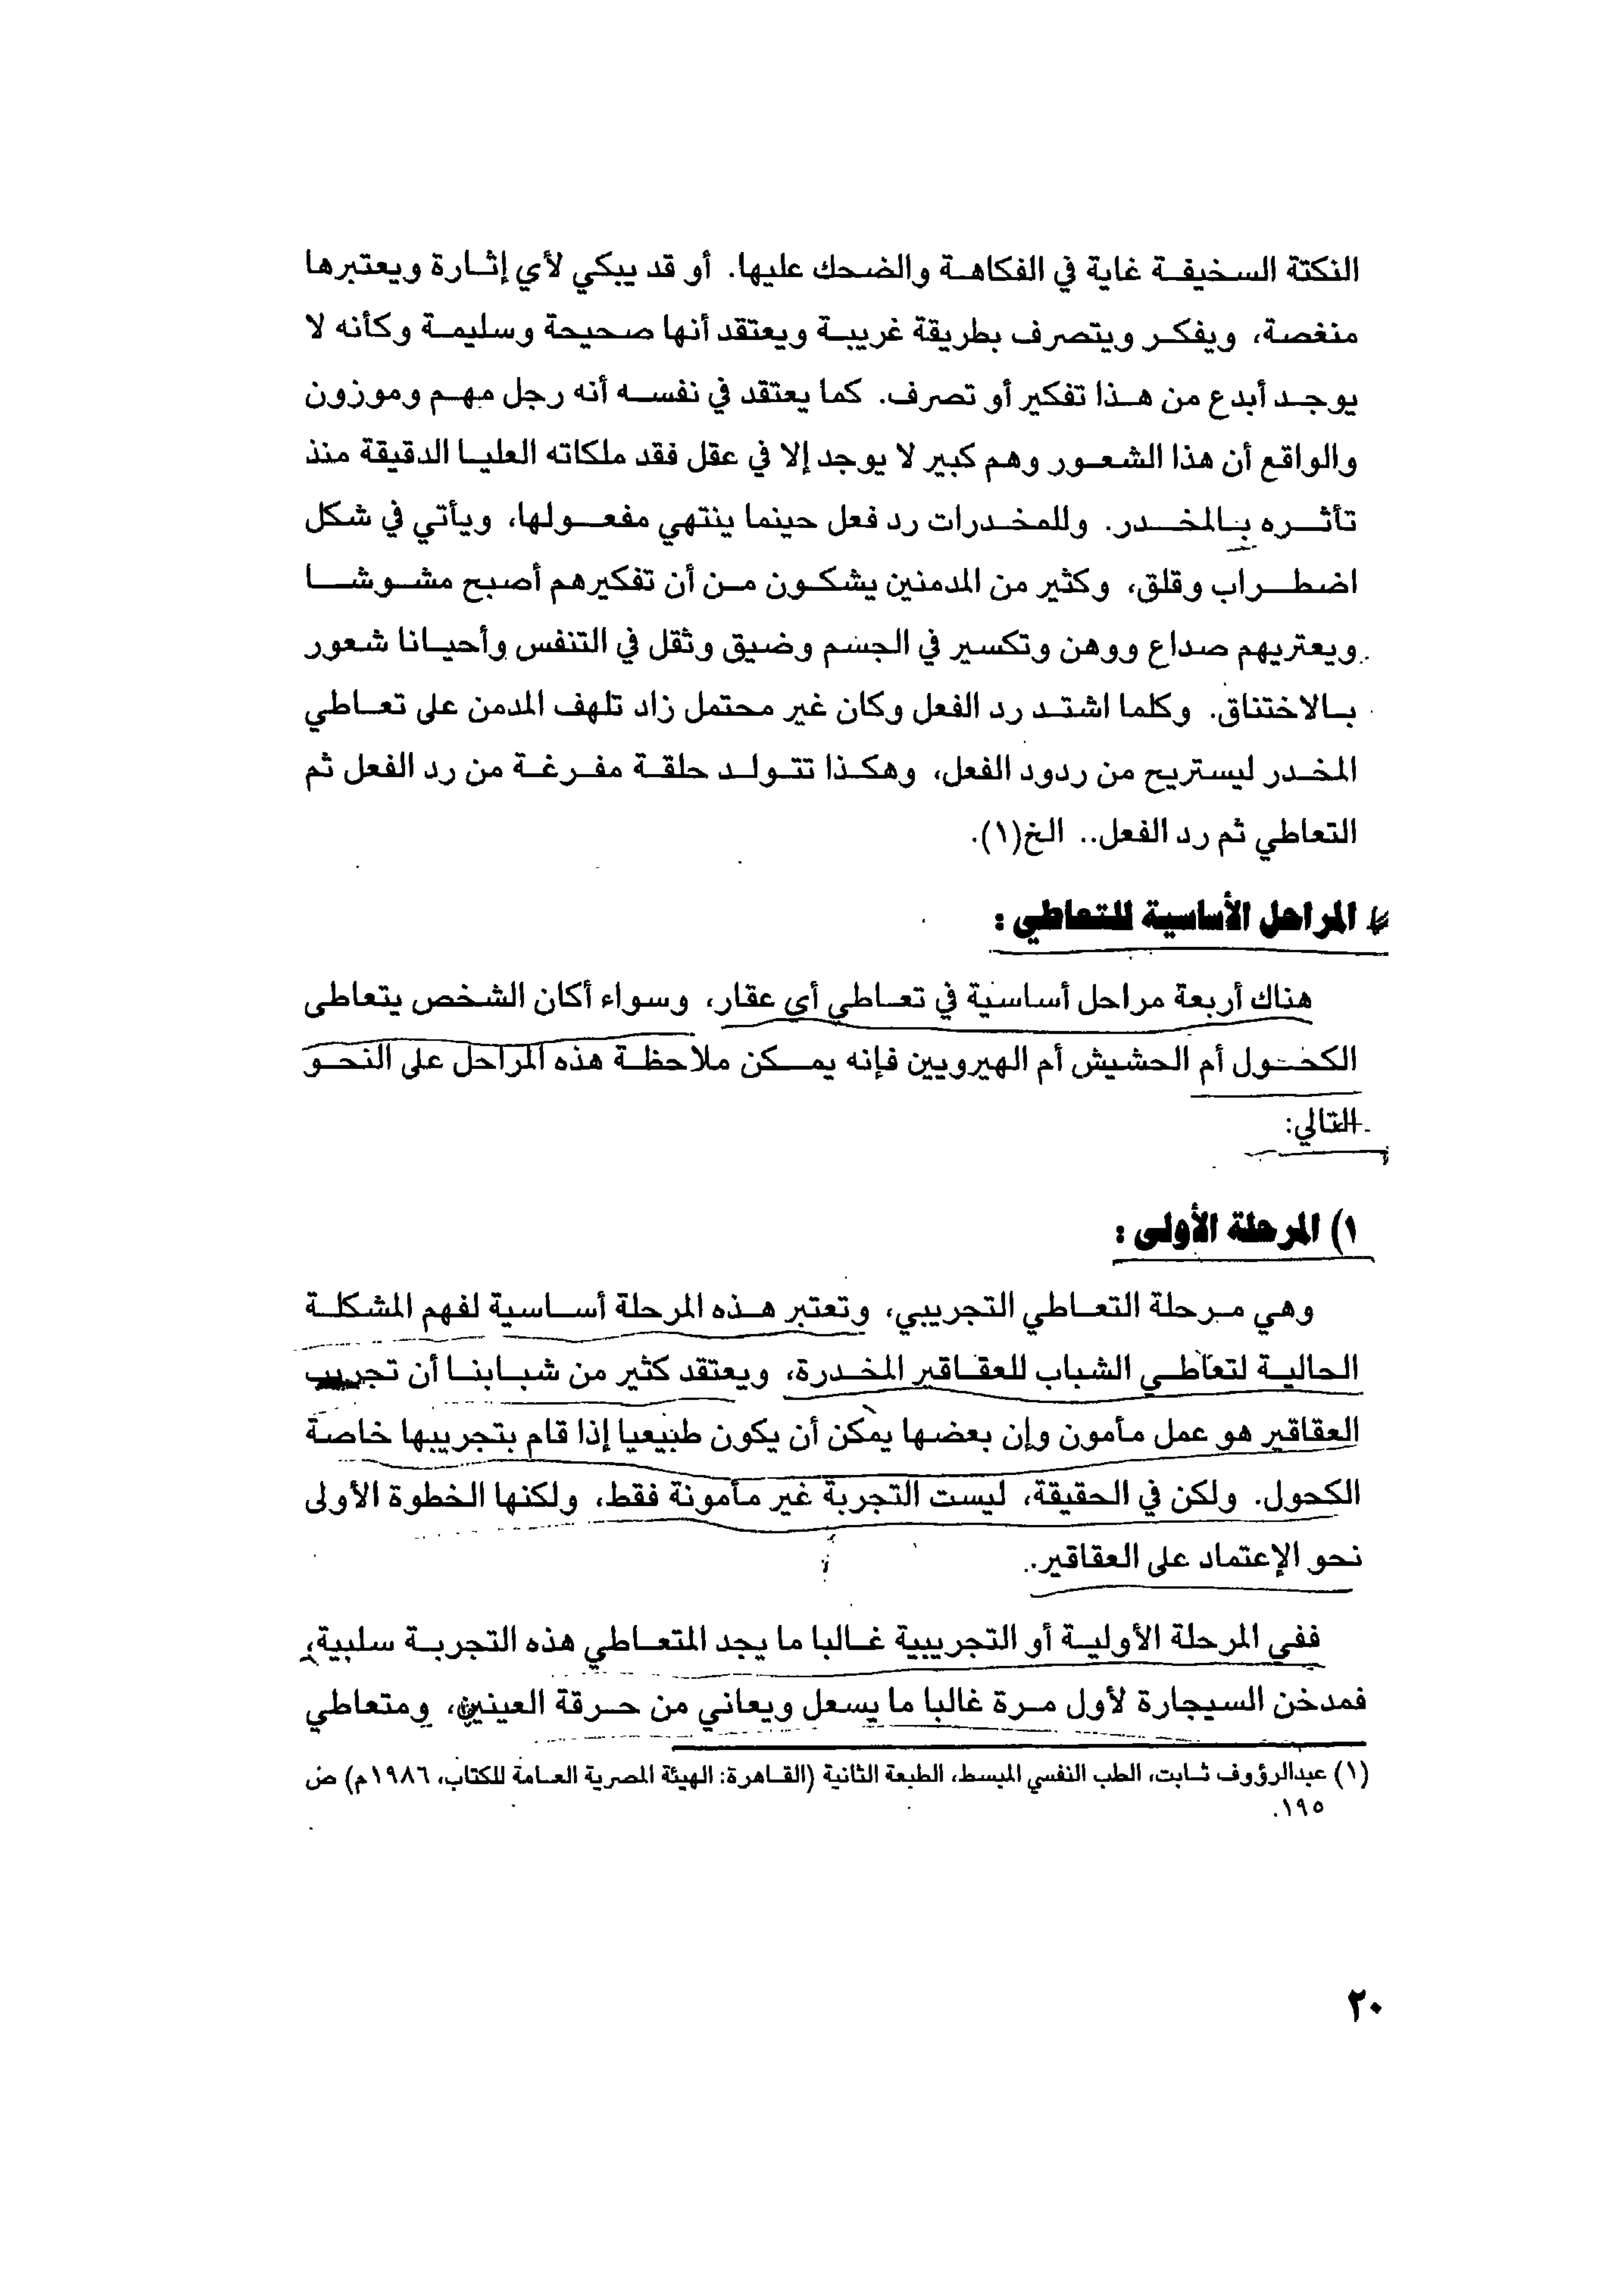 النكتة السخيفة غاية في الفكاهة والضحك عليها. أو قد يبكي لأي إثارة ويعتبرها
منغصة، ويفكر ويتصرف بطريقة غريبة ويعتقد أنها صحيحة وسليمة وكأنه لا
يوجد أبدع من هذا تفكير أو تصرف. كما يعتقد في نفسه أنه رجل مهم وموزون
والواقع أن هذا الشعور وهم كبير لا يوجد إلا في عقل فقد ملكاته العليا الدقيقة منذ
تأثره بالمخدر. وللمخدرات رد فعل حينما ينتهي مفعولها، ويأتي في شكل
اضطراب وقلق، وكثير من المدمنين يشكون من أن تفكيرهم أصبح مشوشا
ويعتريهم صداع ووهن وتكسير في الجسم وضيق وثقل في التنفس وأحيانا شعور
بالاختناق. وكلما اشتد رد الفعل وكان غير محتمل زاد تلهف المدمن على تعاطي
المخدر ليستريح من ردود الفعل، وهكذا تتولد حلقة مفرغة من رد الفعل ثم
التعاطي ثم رد الفعل.. الخ(١).
المراحل الأساسية للتعاطي :
هناك أربعة مراحل أساسية في تعاطي أي عقار، وسواء أكان الشخص يتعاطى
الكحول أم الحشيش أم الهيرويين فإنه يمكن ملاحظة هذه المراحل على النحو
التالي:
١) المرحلة الأولى :
وهي مرحلة التعاطي التجريبي، وتعتبر هذه المرحلة أساسية لفهم المشكلة
الحالية لتعاطي الشباب للعقاقير المخدرة، ويعتقد كثير من شبابنا أن تجريب
العقاقير هو عمل مأمون وإن بعضها يمكن أن يكون طبيعيا إذا قام بتجريبها خاصة
الكحول. ولكن في الحقيقة، ليست التجربة غير مأمونة فقط، ولكنها الخطوة الأولى
نحو الإعتماد على العقاقير.
ففي المرحلة الأولية أو التجريبية غالبا ما يجد المتعاطي هذه التجربة سلبية،
فمدخن السيجارة لأول مرة غالبا ما يسعل ويعاني من حرقة العينين، ومتعاطي
(١) عبدالرؤوف ثابت، الطب النفسي المبسط، الطبعة الثانية (القاهرة: الهيئة المصرية العامة للكتاب، ١٩٨٦م) ص
١٩٥.
٢٠